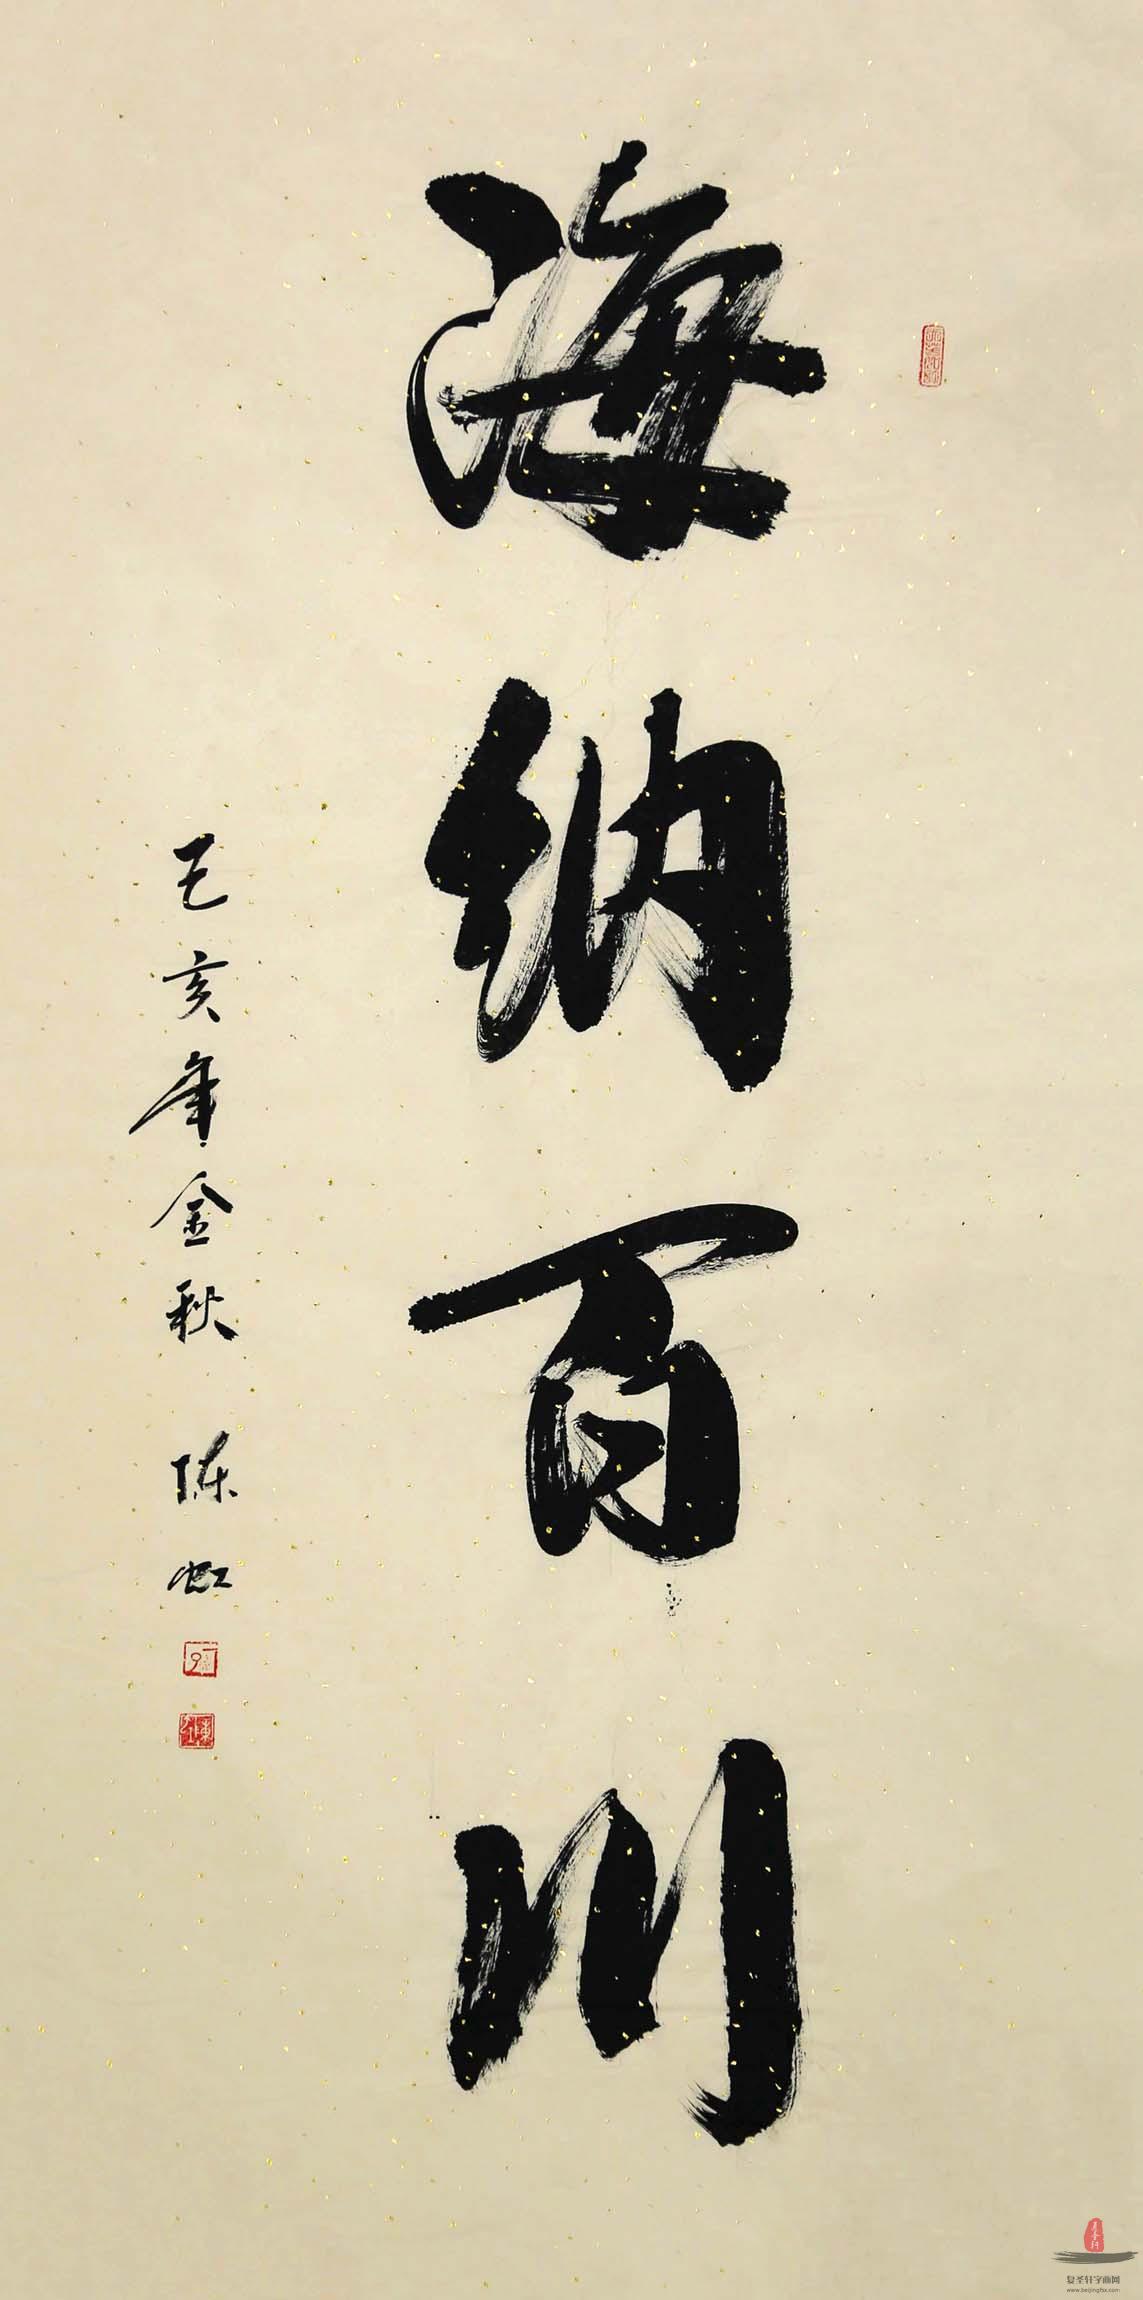 海纳百川
己亥年金秋 陈虹
复圣轩字画网
www.beijingfsx.com